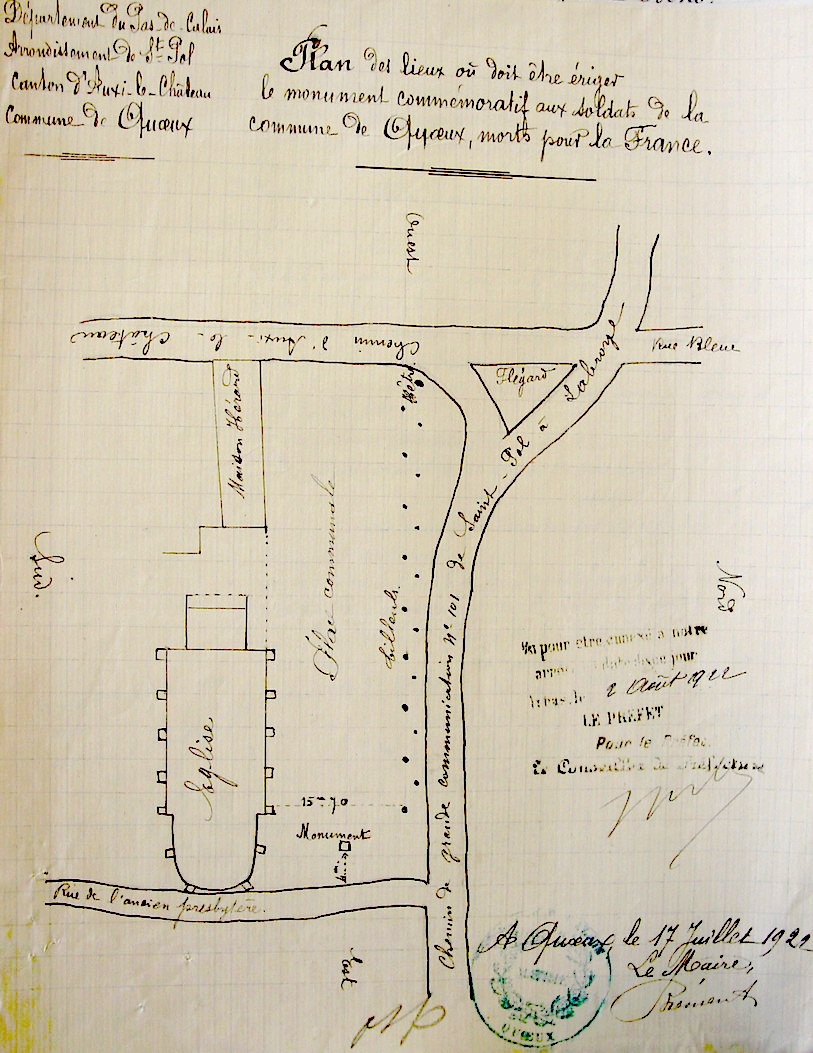 Département du Pas-de-Calais
Arrondissement de St Pol
Canton d'Auxi-le-Château
Commune de Quœux
Plan des lieux où doit être ériger
le monument commémoratif aux soldats de la
commune de Quœux, morts pour la France.
Ouest
Chemin d'Auxi-le-Château
Rue Bleue
Flégard
Maison Thérard
Place communale
tilleuls
Chemin de grande communication N° 101 de Saint-Pol à Labroye
Sud.
Nord
Vu pour être annexé à notre
arrêté jour
Arras, le 2 Août 1922
LE PRÉFET
Pour le Préfet,
Le Conseiller de Préfecture
Eglise
15m 70
Monument
Rue de l'ancien presbytère.
Est
A Quœux, le 17 Juillet 1922
Le Maire,
QUŒUX